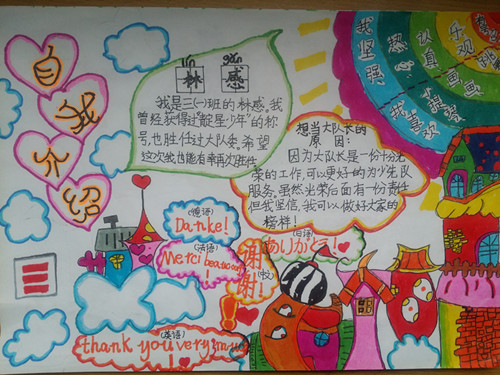 自我介绍
lín gǎn
林感
我是三(一)班的林感。我
曾经获得过“靓星少年”的称
号,也胜任过大队委,希望
这次我也能有幸再次胜任
想当大队长的
原因:
因为大队长是一份十分光
荣的工作,可以更好的为少先队
服务。虽然光荣后面有一份责任
但我坚信,我可以做好大家的
榜样!
我坚强
热心
认真
乐观
我喜欢
弹琴
画画
(德语)
Danke!
(法语)
Merci beaucoup!
谢谢!
(中文)
(日语)
ありがとう!
(英语)
thank you very much
!